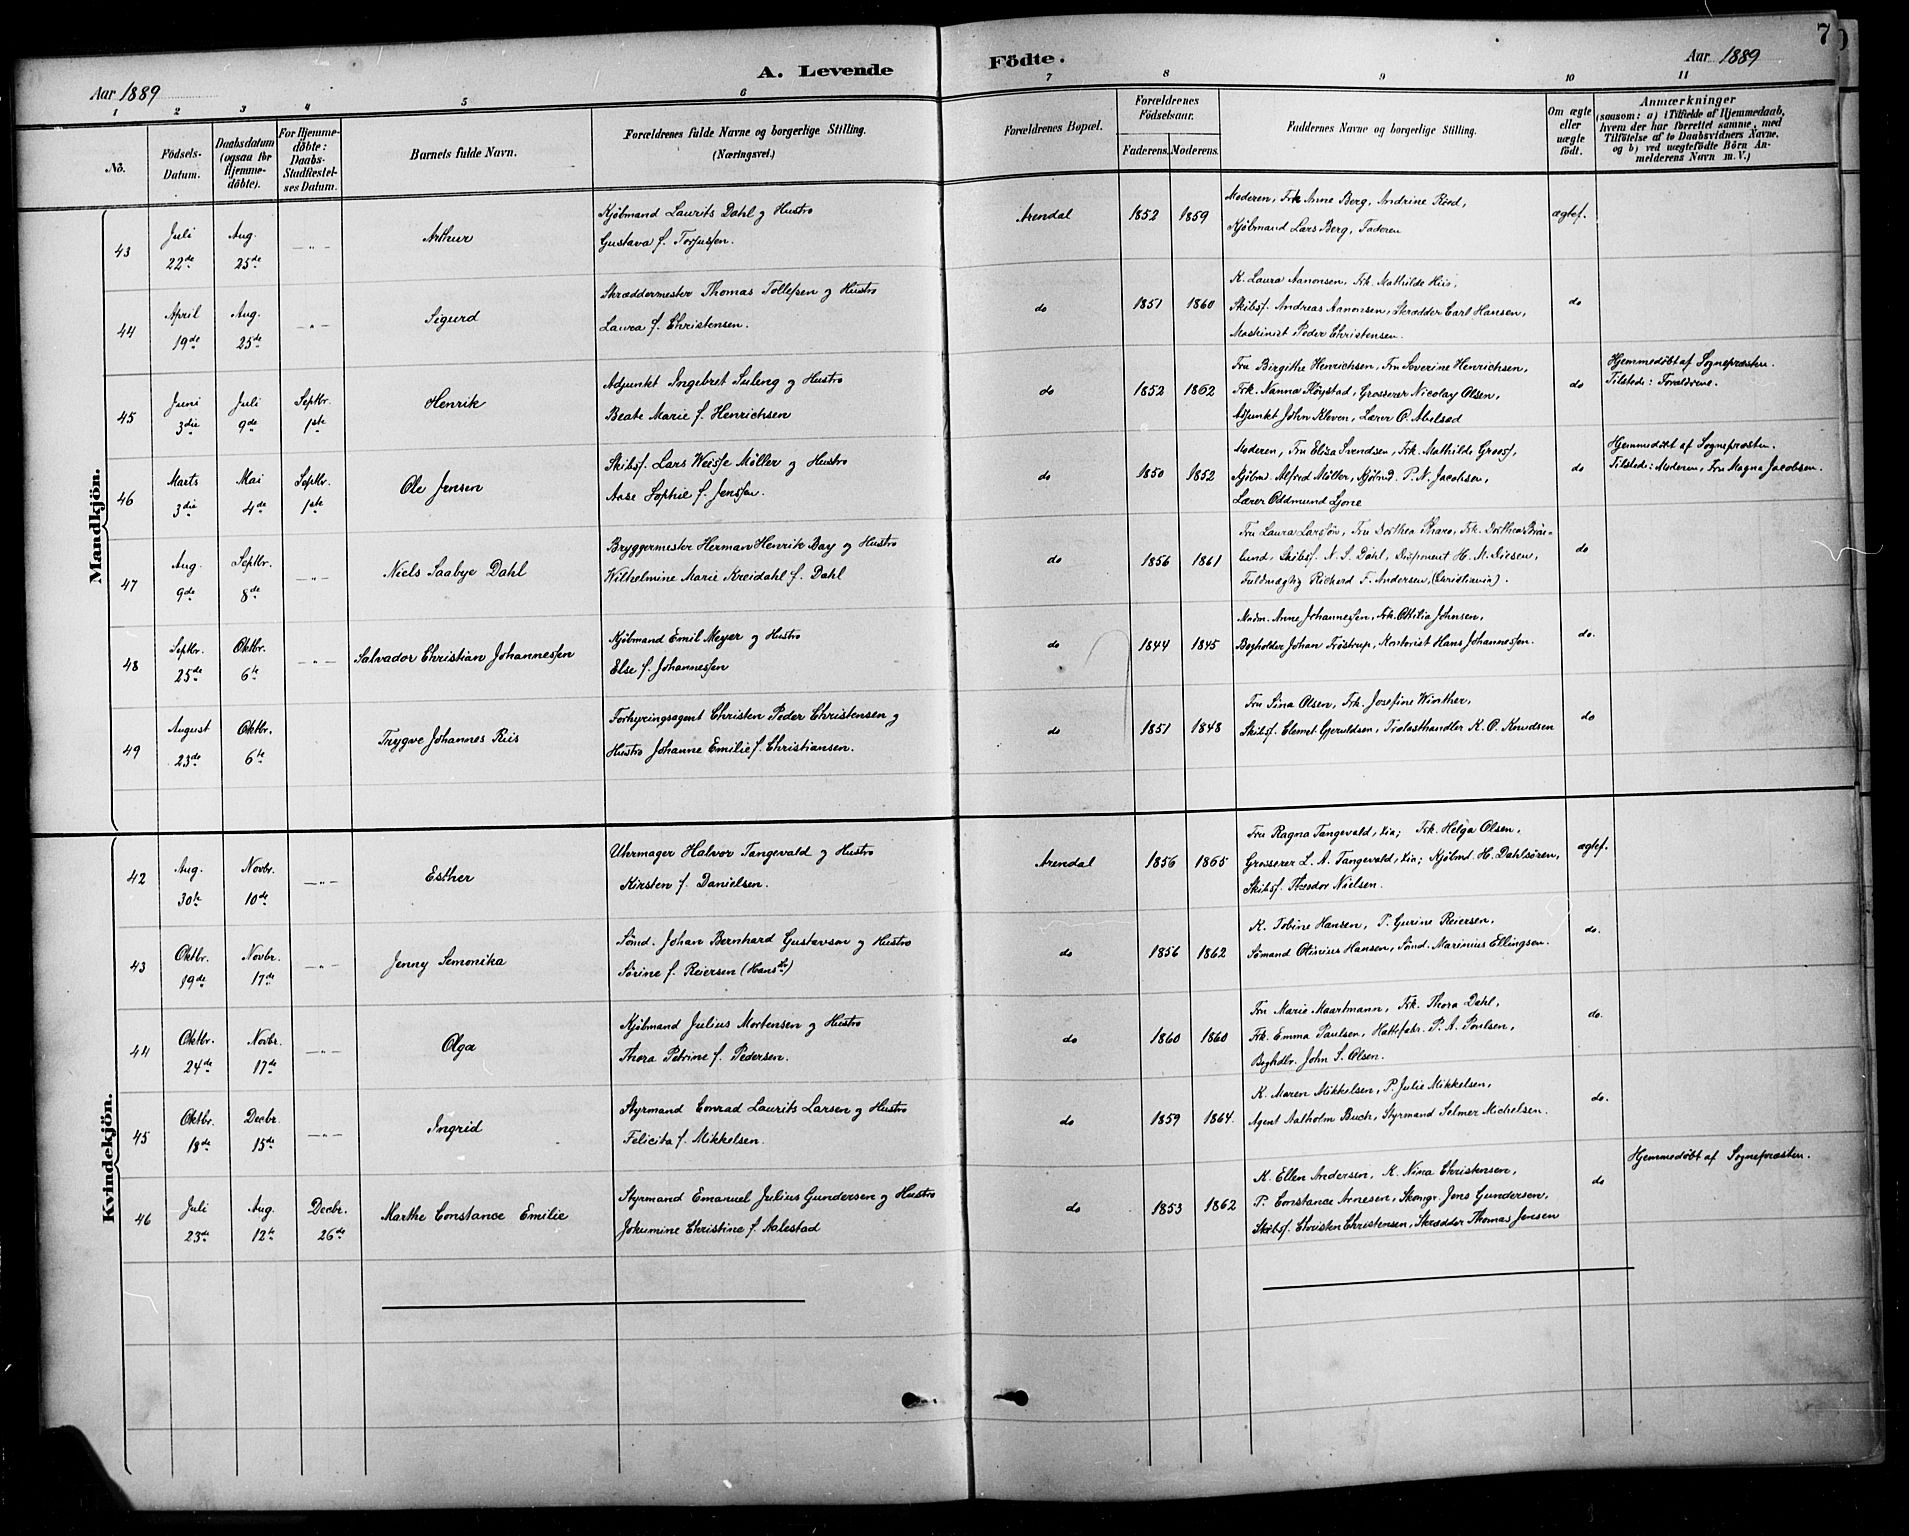 7
A. Levende Födte.
Aar 1889
Aar 1889
1 2 3 4 5 6 7 8 9 10 11
No.
Födsels-
Datum.
Daabsdatum
(ogsaa for
Hjemme-
döbte).
For Hjemme-
döbte:
Daabs-
Stadfæstel-
ses Datum.
Barnets fulde Navn.
Forældrenes fulde Navne og borgerlige Stilling.
(Næringsvei.)
Forældrenes Bopæl.
Forældrenes
Födselsaar.
Faderens. Moderens.
Faddernes Navne og borgerlige Stilling.
Om ægte
eller
uægte
födt.
Anmærkninger
(saasom: a) i Tilfælde af Hjemmedaab,
hvem der har forrettet samme, med
Tilföielse af to Daabsvidners Navne,
og b) ved uægtefödte Börn An-
melderens Navn m. V.)
Mandkjön.
43
Juli
22de
Aug.
25de
—„—
Arthur
Kjöbmand Laurits Dahl og Hustro
Gustava f. Torjussen.
Arendal
1852 1859
Moderen, Frk Anne Berg, Andrine Röed,
Kjöbmand Lars Berg, Faderen
ægtef.
44
April
19de
Aug.
25de
—„—
Sigurd
Skræddermester Thomas Tollefsen og Hustro
Laura f. Christensen.
do
1851 1860
K. Laura Aanonsen, Frk. Mathilde Hiis,
Skibsf. Andreas Aanonsen, Skrædder Carl Hansen,
Maskinist Peder Christensen.
do
45
Juni
3die
Juli
9de
Septbr.
1ste
Henrik
Adjunkt Ingebret Suleng og Hustro
Beate Marie f. Henrichsen
do
1852 1862
Fru Birgithe Henrichsen, Fru Severine Henrichsen,
Frk. Nanna Flöystad, Grosserer Nicolay Olsen,
Adjunkt John Kleven, Lærer O. Abelsöd
do
Hjemmedöbt af Sognepræsten.
Tilstede: Forældrene.
46
Marts
3die
Mai
4de
Septbr.
1ste
Ole Jensen
Skibsf. Lars Weisse Möller og Hustro
Aase Sophie f. Jenssen.
do
1850 1852
Moderen, Fru Elisa Svendsen, Frk. Mathilde Groos,
Kjöbm. Alfred Möller, Kjöbmd. P. N. Jacobsen,
Lærer Oddmund Ljone
do
Hjemmedöbt af Sognepræsten.
Tilstede: Moderen, Fru Magna Jacobsen.
47
Aug.
9de
Septbr.
8de
—„—
Niels Saabye Dahl
Bryggermester Herman Henrik Bay og Hustro
Wilhelmine Marie Kreidahl f. Dahl
do
1856 1861
Fru Laura Larssön, Fru Dorthea Tharo, Frk. Dorthea
lund, Skibsf. N. S. Dahl, Disponent H. M. Niesen,
Fuldmægtig Richard F. Andersen, (Christiania).
do
48
Septbr.
25de
Oktbr.
6te
—„—
Salvador Christian Johannessen
Kjöbmand Emil Meyer og Hustro
Else f. Johannessen
do
1844 1845
Madm. Anne Johannessen, Frk. Othilia Johnsen,
Bogholder Johan Fröstrup, Kontorist Hans Johannessen.
do.
49
August
23de
Oktbr.
6te
Trygve Johannes Riis
Forhyringsagent Christen Peder Christensen og
Hustro Johanne Emilie f. Christiansen.
do
1851 1848
Fru Sina Olsen, Frk. Josefine Winther,
Skibsf. Clemet Gjeruldsen, Trælasthandler K. O. Knudsen
do
Kvindekjön.
42
Aug.
30te
Novbr.
10de
—„—
Esther
Uhrmager Halvor Tangevald og Hustro
Kirsten f. Danielsen.
Arendal
1856 1865
Fru Ragna Tangevald, Xia; Frk. Helga Olsen,
Grosserer L. A. Tangevald, Xia; Kjöbmd. H. Dahlsören,
Skibsf. Theodor Nielsen.
ægtef.
43
Oktbr.
19de
Novbr.
17de
—„—
Jenny Semonika
Sömd. Johan Bernhard Gustavson og Hustro
Sörine f. Reiersen
do
1856 1862
K. Tobine Hansen, P. Gurine Reiersen,
Sömand Olinius Hansen, Sömd. Marinius Ellingsen.
do.
44
Oktbr.
24de
Novbr.
17de
—„—
Olga
Kjöbmand Julius Mortensen og Hustro
Thora Petrine f. Pedersen.
do
1860 1860
Fru Marie Maartmann, Frk. Thora Dahl,
Frk. Emma Paulsen, Hattefabr. P. A. Poulsen,
Boghdlr. John S. Olsen.
do.
45
Oktbr.
18de
Decbr.
15de
—„—
Ingrid
Styrmand Conrad Laurits Larsen og Hustro
Felicita f. Mikkelsen.
do
1859 1864.
K. Maren Mikkelsen, P. Julie Mikkelsen,
Agent Aalholm Buch, Styrmand Selmer Michelsen.
do.
46
Juli
23de
Aug.
12te
Decbr.
26de
Marthe Constance Emilie
Styrmand Emanuel Julius Gundersen og Hustro
Jokumine Christine f. Aalestad
do
1853 1862
K. Ellen Andersen, K. Nina Christensen,
P. Constance Arnesen, Skomgr. Jens Gundersen,
Skibsf. Christen Christensen, Skrædder Thomas Jensen
do
Hjemmedöbt af Sognepræsten.